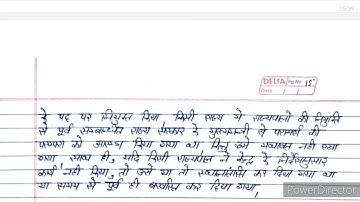 DELTA Pg No. 15
Date / /
के पद पर नियुक्त किया, किसी राज्य में राज्यपालों की नियुक्ति
से पूर्व सम्बन्धित राज्य सरकार के मुख्यमन्त्री से परामर्श की
परम्परा को आरम्भ किया गया था किन्तु उसे यथावत नहीं रखा
गया। साथ ही, यदि किसी राज्यपाल ने केन्द्र के निर्देशानुसार
कार्य नहीं किया, तो उसे या तो स्थानान्तरित कर दिया गया था
या समय से पूर्व ही बर्खास्त कर दिया गया,
PowerDirector